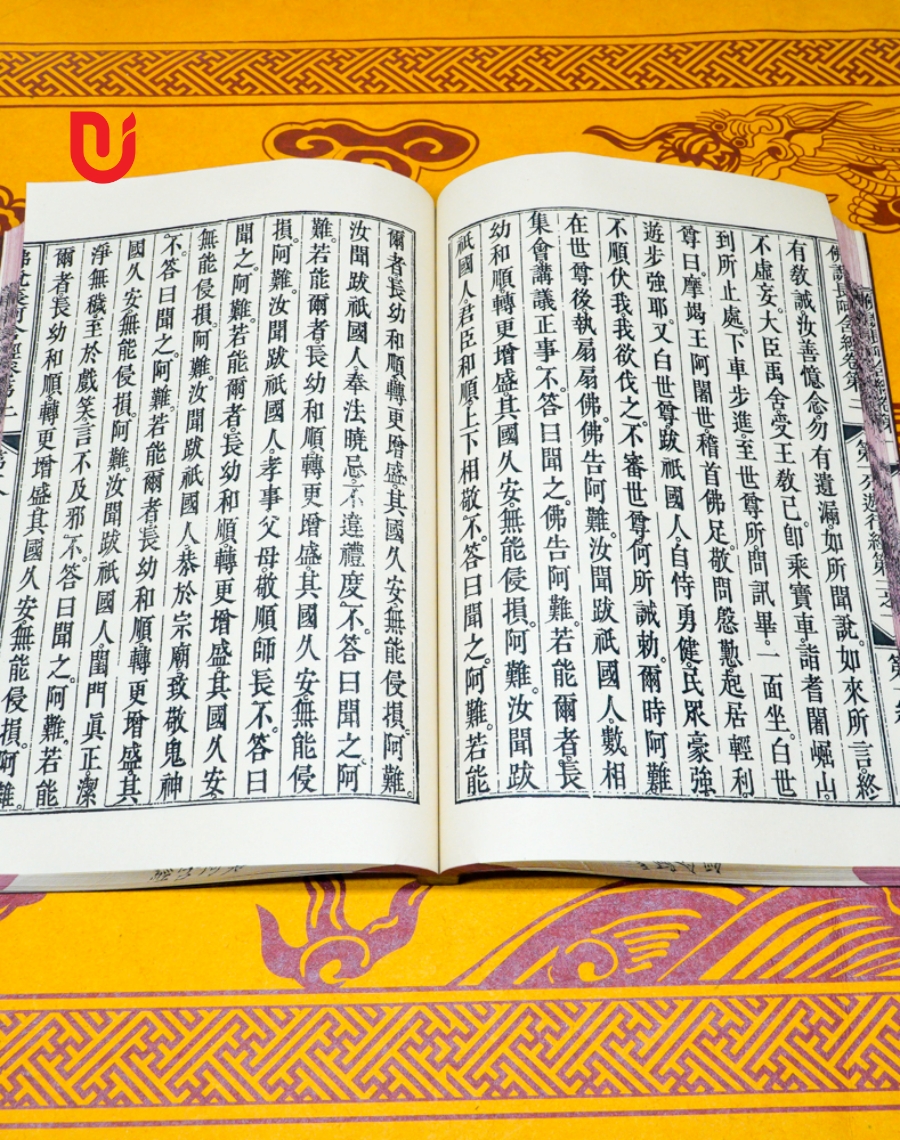 佛說長阿含經卷第二
第一分遊行經第二之
有教誡。汝善憶念。勿有遺漏。如所聞說。如來所言。終
不虛妄。大臣禹舍。受王教已。卽乘寶車。詣耆闍崛山。
到所止處。下車步進。至世尊所。問訊畢。一面坐。白世
尊曰。摩竭王阿闍世。稽首佛足。敬問慇懃。起居輕利。
遊步強耶。又白世尊。跋祇國人。自恃勇健。民眾豪強。
不順伏我。我欲伐之。不審世尊。何所誡勅。爾時阿難。
在世尊後執扇扇佛。佛告阿難。汝聞跋祇國人。數相
集會。講議正事。不。答曰聞之。佛告阿難。若能爾者。長
幼和順。轉更增盛。其國久安。無能侵損。阿難。汝聞跋
祇國人。君臣和順。上下相敬。不。答曰聞之。阿難。若能
爾者。長幼和順。轉更增盛。其國久安。無能侵損。阿難。
汝聞跋祇國人。奉法曉忌。不違禮度。不。答曰聞之。阿
難。若能爾者。長幼和順。轉更增盛。其國久安。無能侵
損。阿難。汝聞跋祇國人。孝事父母。敬順師長。不。答曰
聞之。阿難。若能爾者。長幼和順。轉更增盛。其國久安。
無能侵損。阿難。汝聞跋祇國人。恭於宗廟。致敬鬼神。
不。答曰聞之。阿難。若能爾者。長幼和順。轉更增盛。其
國久安。無能侵損。阿難。汝聞跋祇國人。閨門眞正。潔
淨無穢。至於戲笑。言不及邪。不。答曰聞之。阿難。若能
爾者。長幼和順。轉更增盛。其國久安。無能侵損。阿難。